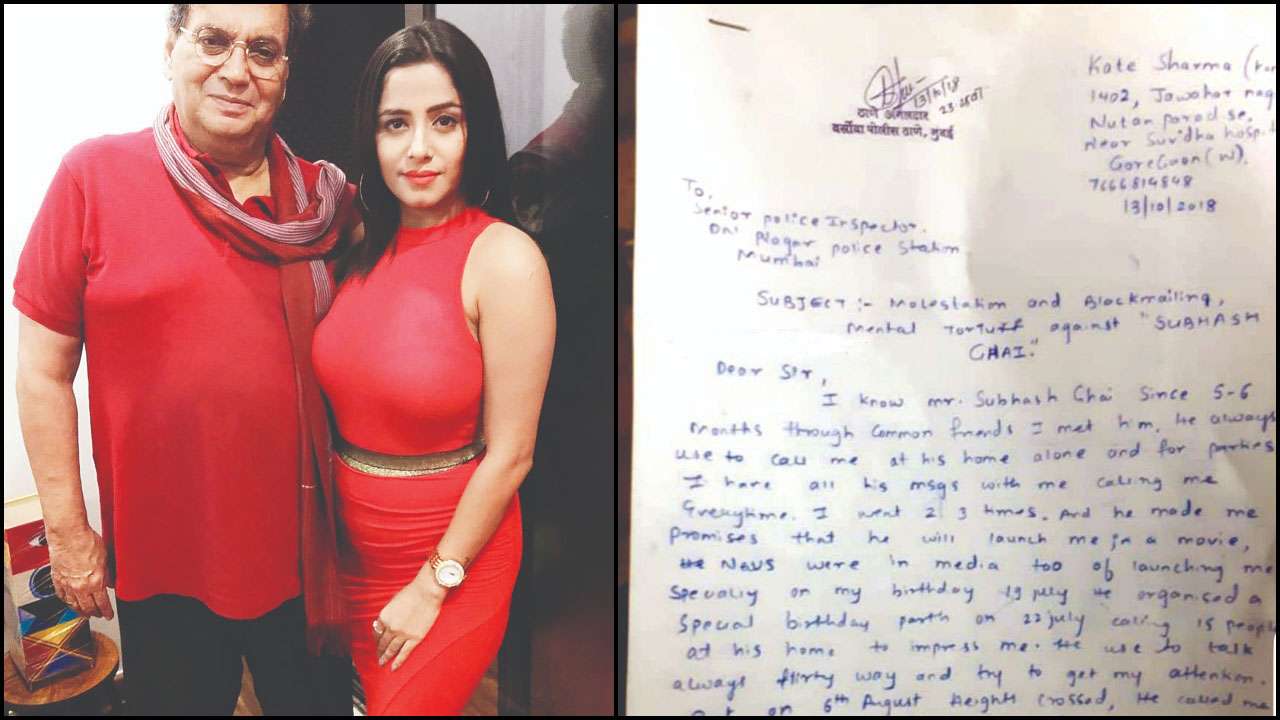 13/10/18
ठाणे अंमलदार
वर्सोवा पोलीस ठाणे, मुंबई
Kate Sharma
1402, Jawahar nag
Nutan parad se,
Near Suvidha hosp
GoreGaon (W).
7666814848
13/10/2018
To,
Senior police Inspector.
Dn' Nagar police Station
Mumbai
SUBJECT :- Molestation and Blackmailing,
Mental Tortuff against "SUBHASH
GHAI."
Dear Sir,
I know mr. Subhash Ghai Since 5-6
Months through Common friends I met him, He always
use to call me at his home alone and for parties
I have all his msgs with me calling me
Everytime. I went 2 3 times. And he made me
Promises that he will launch me in a movie,
News were in media too of launching me
Specially on my birthday 19 july He organised a
Special birthday parth on 22 july calling 15 people
at his home to impress me. He use to talk
always flirty way and try to get my attention.
on 6th August heights crossed, He called me